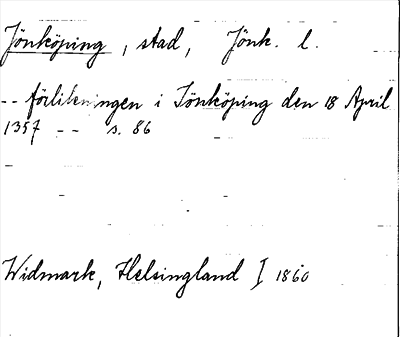 Jönköping, stad, Jönk. l.
-- förlikningen i Jönköping den 18 April
1357 -- s. 86
Widmark, Helsingland I 1860